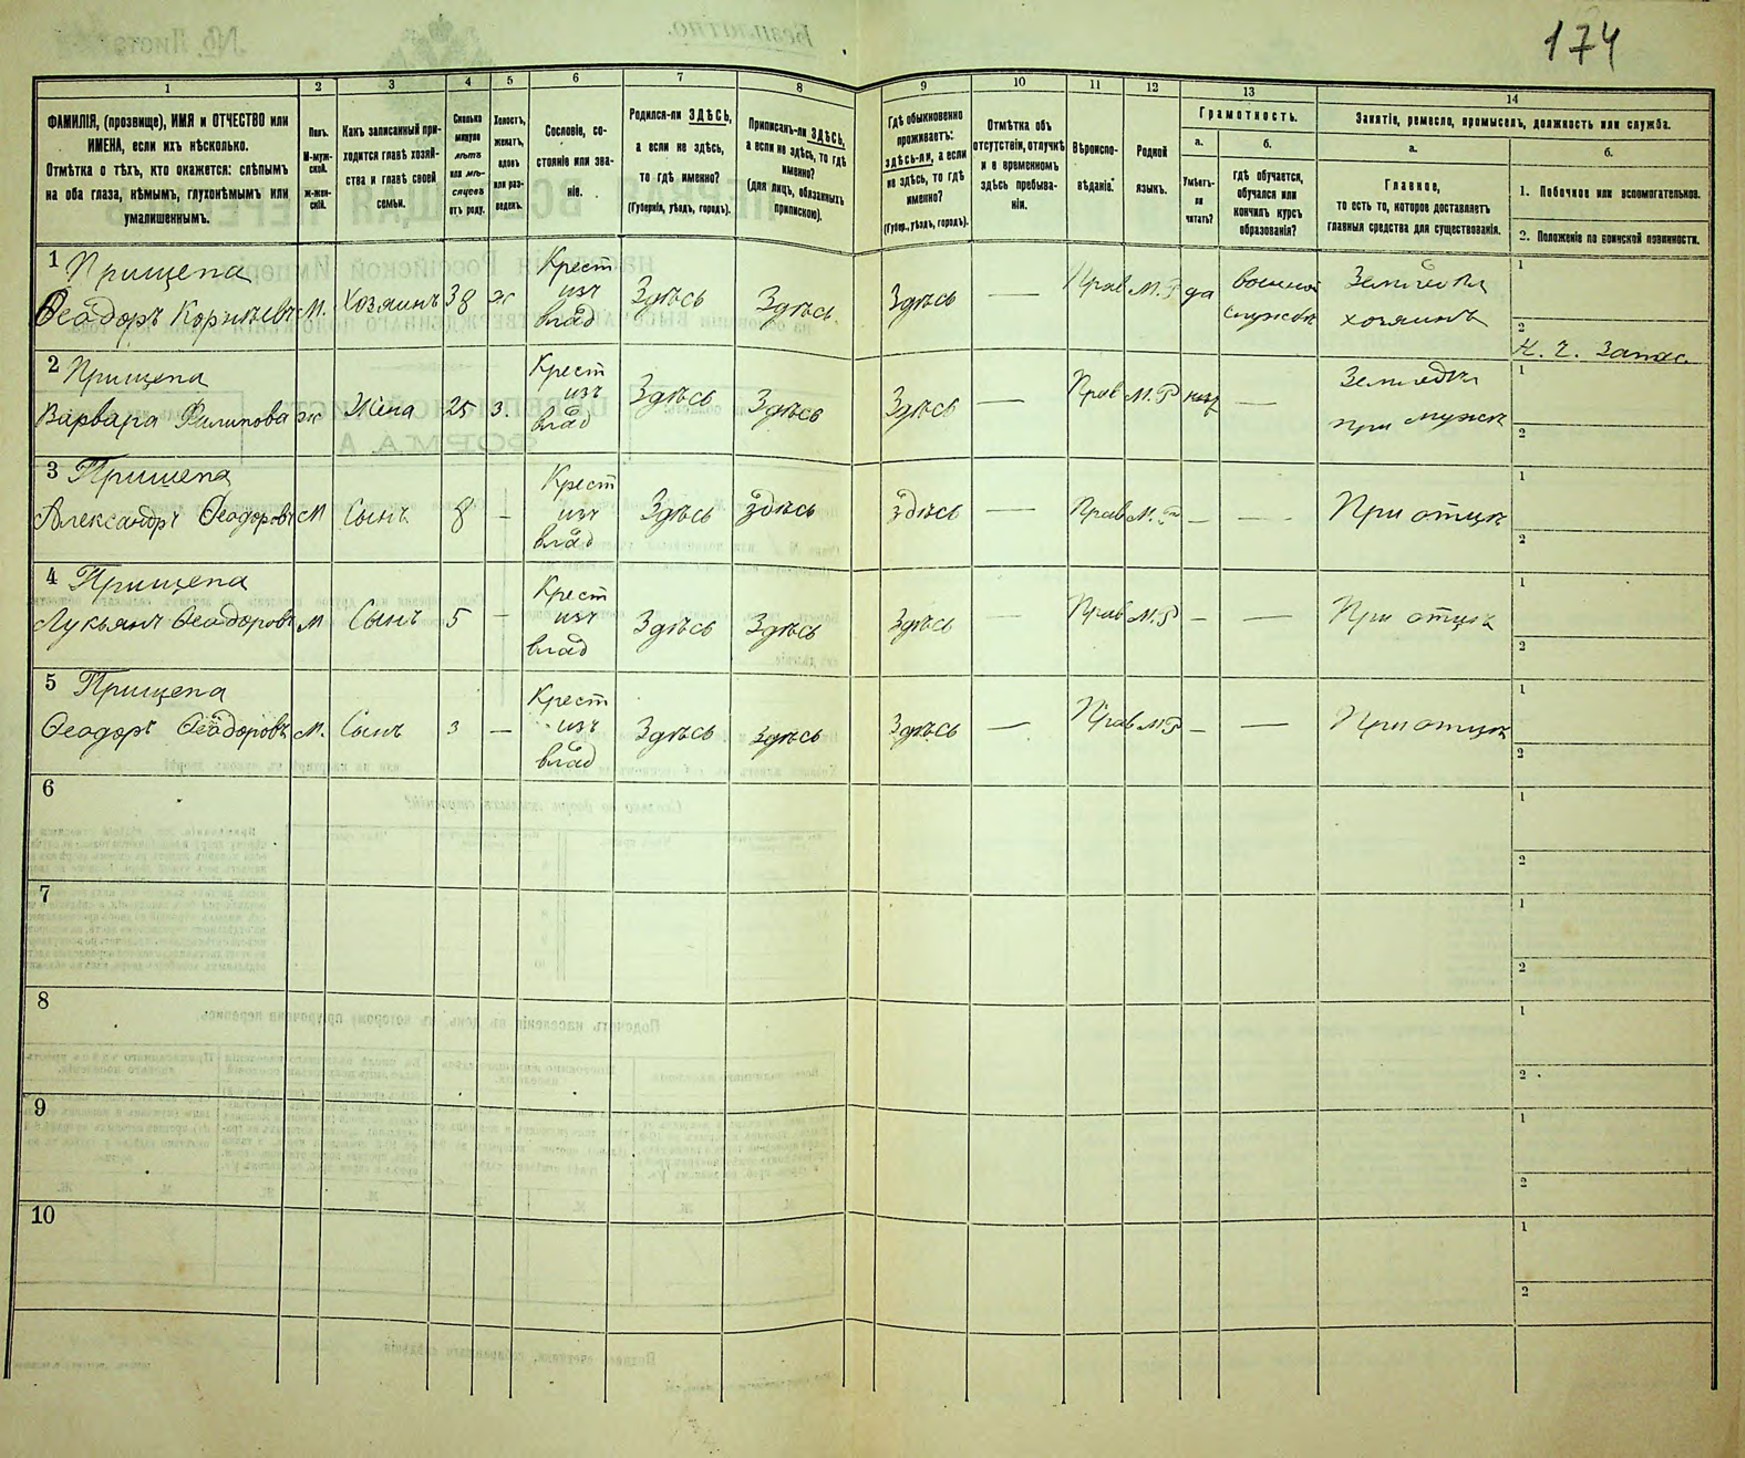 174
1 2 3 4 5 6 7 8 9 10 11 12 13 14
ФАМИЛІЯ, (прозвище), ИМЯ и ОТЧЕСТВО или
ИМЕНА, если ихъ нѣсколько.
Отмѣтка о тѣхъ, кто окажется: слѣпымъ
на оба глаза, нѣмымъ, глухонѣмымъ или
умалишеннымъ.
Полъ.
М-муж-
ской.
Ж-жен-
скій.
Какъ записанный при-
ходится главѣ хозяй-
ства и главѣ своей
семьи.
Сколько
минуло
лѣтъ
или мѣ-
сяцевъ
отъ роду.
Холостъ,
женатъ,
вдовъ
или раз-
веденъ.
Сословіе, со-
стояніе или зва-
ніе.
Родился-ли ЗДѢСЬ,
а если не здѣсь,
то гдѣ именно?
(Губернія, уѣздъ, городъ).
Приписанъ-ли ЗДѢСЬ,
а если не здѣсь, то гдѣ
именно?
(для лицъ, обязанныхъ
припискою).
Гдѣ обыкновенно
проживаетъ:
здѣсь-ли, а если
не здѣсь, то гдѣ
именно?
(Губер., уѣздъ, городъ).
Отмѣтка объ
отсутствіи, отлучкѣ
и о временномъ
здѣсь пребыва-
ніи.
Вѣроиспо-
вѣданіе.
Родной
языкъ.
Грамотность.
а.
Умѣетъ-
ли
читать?
б.
гдѣ обучается,
обучался или
кончилъ курсъ
образованія?
Занятіе, ремесло, промыселъ, должность или служба.
а.
Главное,
то есть то, которое доставляетъ
главныя средства для существованія.
б.
1. Побочное или вспомогательное.
2. Положеніе по воинской повинности.
1 Прищепа
Ѳеодоръ Корнѣевъ М. Хозяинъ 38 ж Крест изъ влад Здѣсь Здѣсь Здѣсь — Прав М.Р да военной службѣ хозяинъ
1
2
Н. Ч. Запас.
2 Прищепа
Варвара Филипова ж Жена 25 з. Крест изъ влад Здѣсь Здѣсь Здѣсь — Прав М.Р — Земледѣл при мужѣ
1
2
3 Прищепа
Александръ Ѳеодоровъ М Сынъ 8 — Крест изъ влад Здѣсь здѣсь здѣсь — Прав М.Р — — При отцѣ
1
2
4 Прищепа
Лукьянъ Ѳеодоровъ М Сынъ 5 — Крест изъ влад Здѣсь Здѣсь Здѣсь — Прав М.Р — — При отцѣ
1
2
5 Прищепа
Ѳеодоръ Ѳеодоровъ М. Сынъ 3 — Крест изъ влад Здѣсь здѣсь Здѣсь — Прав М.Р — — При отцѣ
1
2
6
1
2
7
1
2
8
1
2
9
1
2
10
1
2